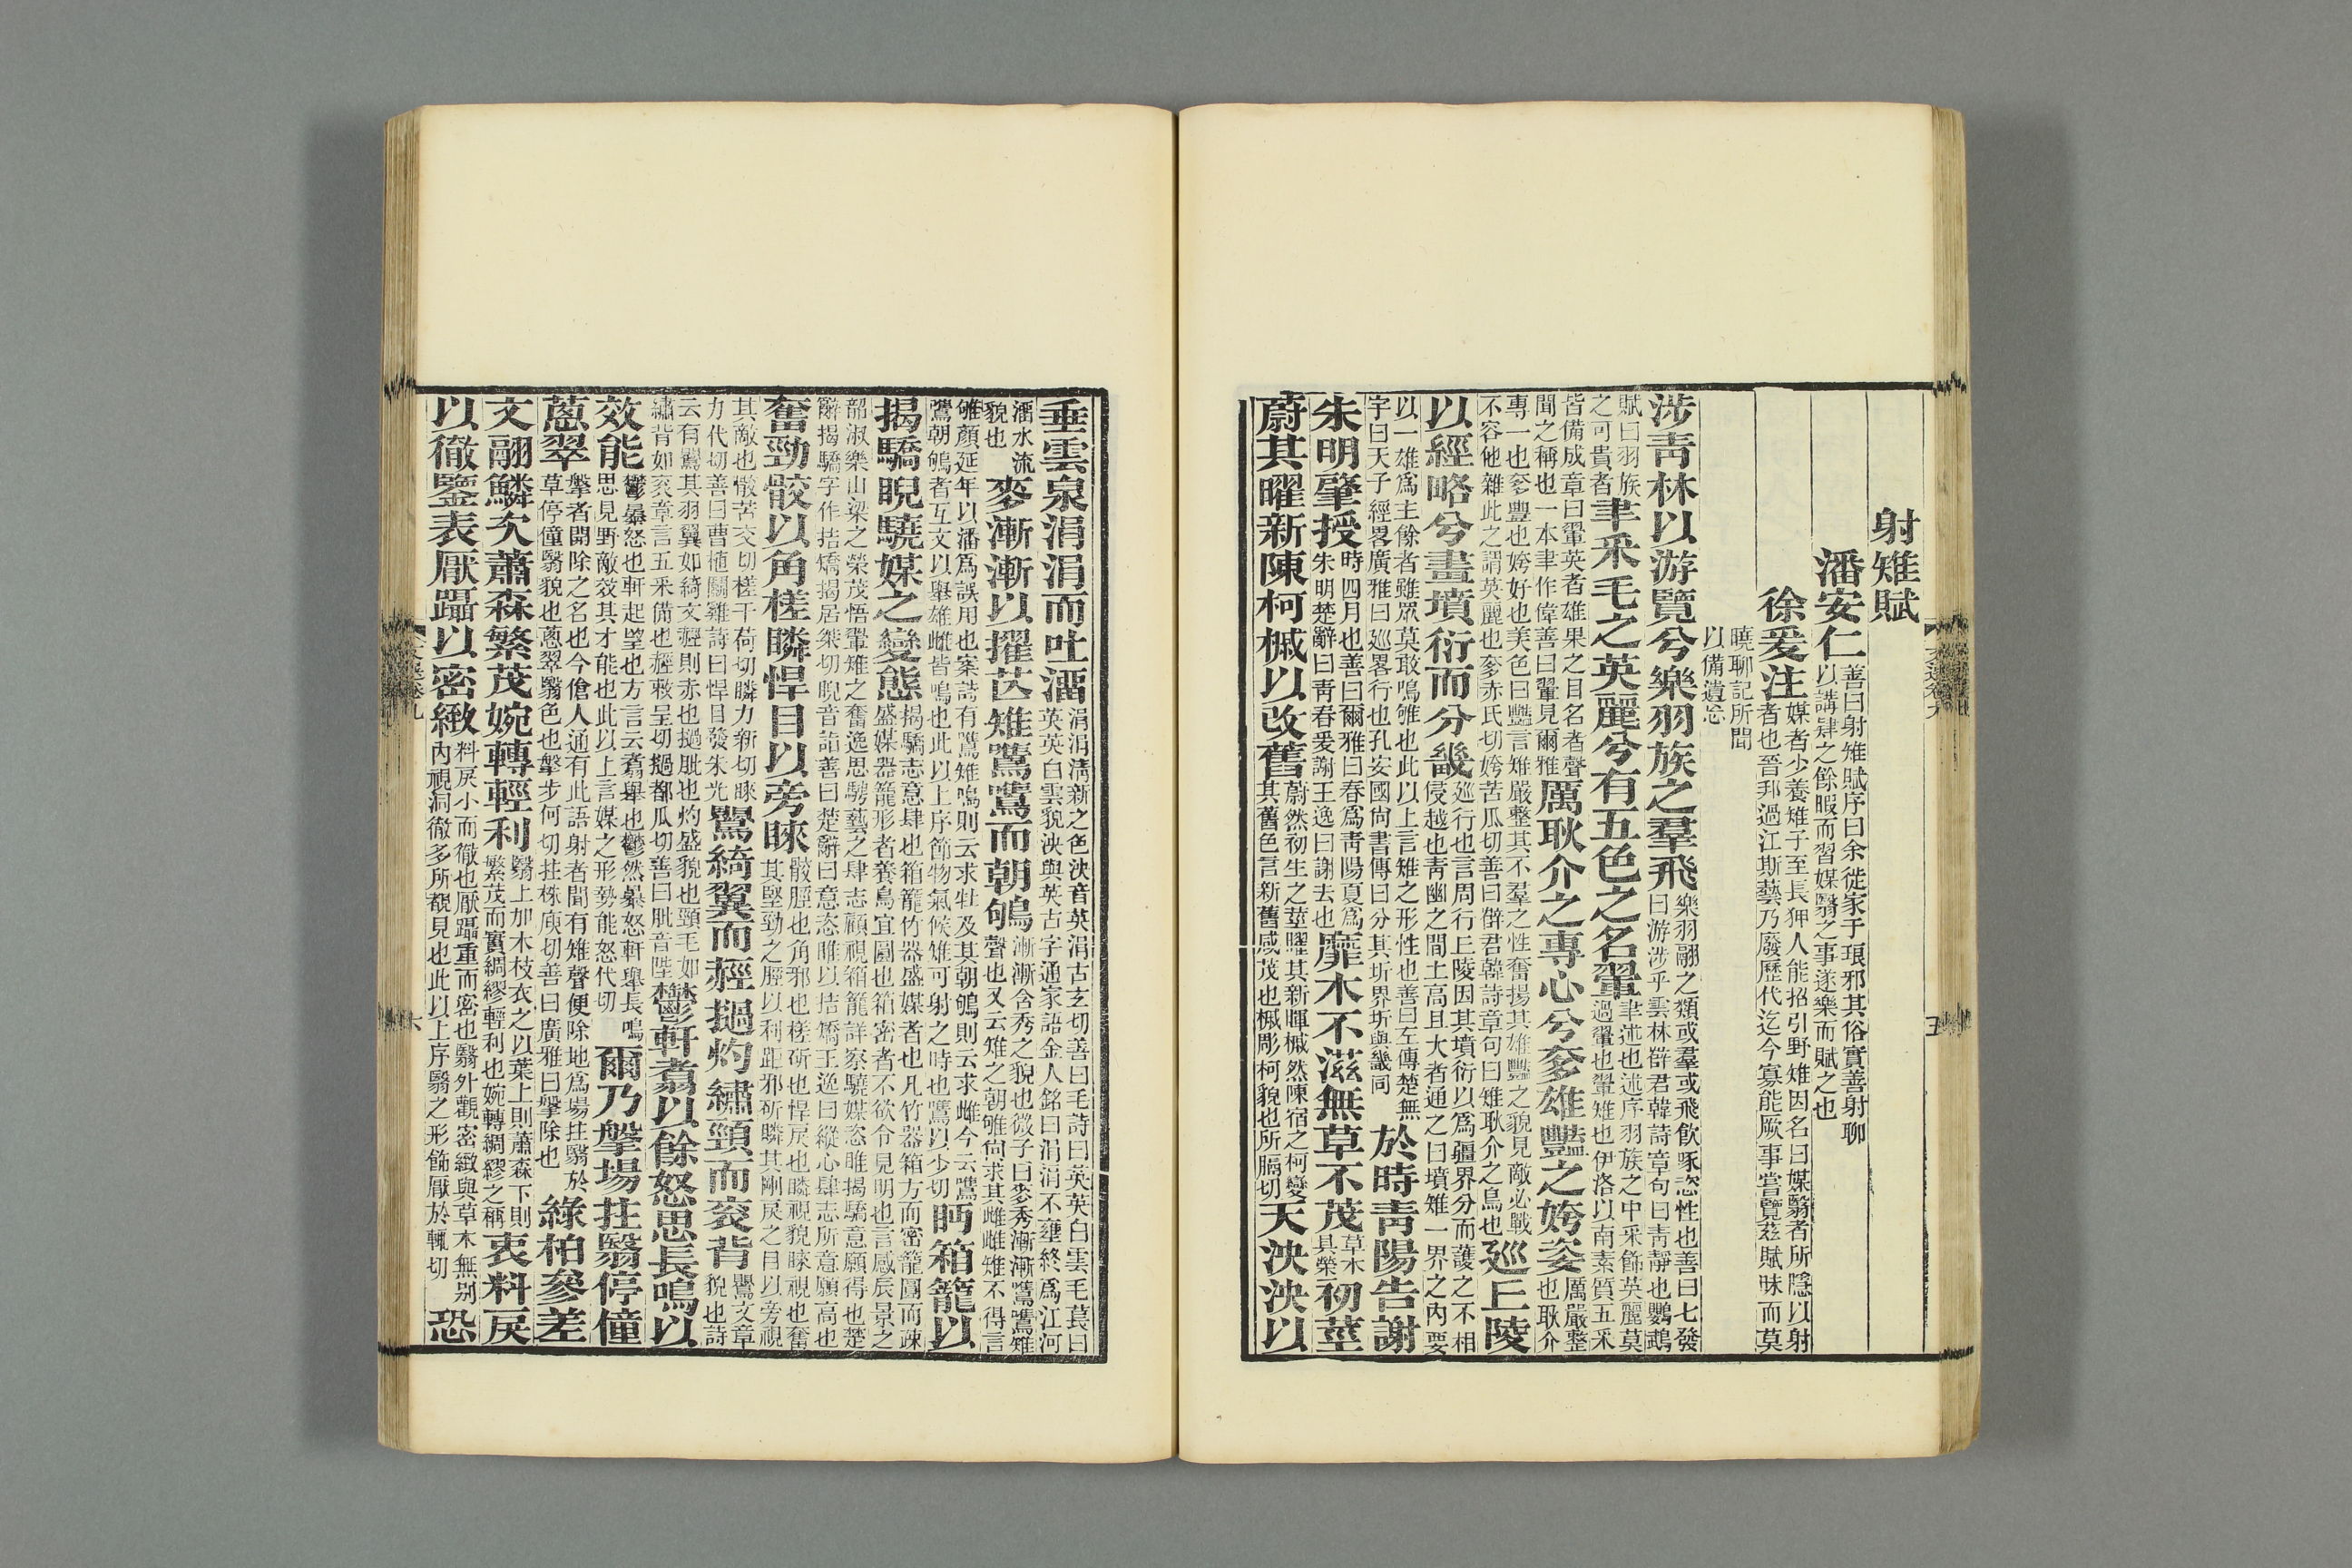 射雉賦
潘安仁善曰射雉賦序曰余徙家于琅邪其俗實善射聊以講肄之餘暇而習媒翳之事遂樂而賦之也
徐爰注媒者少養雉子至長狎人能招引野雉因名曰媒翳者所隱以射者也晉邦過江斯藝乃廢歷代迄今寡能厥事嘗覽茲賦昧而莫
曉聊記所聞以備遺忘
涉青林以游覽兮樂羽族之羣飛樂羽翮之類或羣或飛飲啄恣性也善曰七發曰游涉乎雲林薛君韓詩章句曰靑靜也鸚鵡
賦曰羽族之可貴者聿釆毛之英麗兮有五色之名翬聿述也述序羽族之中采飾英麗莫過翬也翬雉也伊洛以南素質五釆
皆備成章曰翬英者雄果之目名者聲聞之稱也一本聿作偉善曰翬見爾雅厲耿介之專心兮奓雄豔之姱姿厲嚴整也耿介
專一也奓豐也姱好也美色曰豔言雉嚴整其不羣之性奮揚其雄豔之貌見敵必戰不容他雜此之謂英麗也奓赤氏切姱苦瓜切善曰薛君韓詩章句曰雉耿介之鳥也巡丘陵
以經略兮畫墳衍而分畿巡行也言周行丘陵因其墳衍以爲疆界分而護之不相侵越也靑幽之間土高且大者通之曰墳雉一界之內要
以一雄爲主餘者雖眾莫敢鳴雊也此以上言雉之形性也善曰左傳楚無字曰天子經畧廣雅曰巡畧行也孔安國尚書傳曰分其圻界圻與畿同於時靑陽告謝
朱明肇授時四月也善曰爾雅曰春爲靑陽夏爲朱明楚辭曰靑春爰謝王逸曰謝去也靡木不滋無草不茂草木具榮初莖
蔚其曜新陳柯槭以改舊蔚然初生之莖曜其新暉槭然陳宿之柯變其舊色言新舊咸茂也槭彫柯貌也所隔切天泱泱以
文選卷九
五
垂雲泉涓涓而吐溜涓涓淸新之色泱音英涓古玄切善曰毛詩曰英英白雲毛萇曰英英白雲貌泱與英古字通家語金人銘曰涓涓不壅終爲江河
溜水流貌也麥漸漸以擢芒雉鷕鷕而朝鴝漸漸含秀之貌也微子曰麥秀漸漸鷕鷕雉聲也又云雉之朝雊尙求其雌雌雉不得言
雊顏延年以潘爲誤用也案詩有鷕雉鳴則云求牡及其朝鴝則云求雌今云鷕鷕朝鴝者互文以舉雄雌皆鳴也此以上序節物氣候雉可射之時也鷕以少切眄箱籠以
揭驕睨驍媒之變態揭驕志意肆也箱籠竹器盛媒者也凡竹器箱方而密籠圓而疎盛媒器籠形者養鳥宜圓也箱密者不欲令見明也言感辰景之
韶淑樂山梁之榮茂悟翬雉之奮逸思騁藝之肆志顧視箱籠詳察驍媒恣睢揭驕意願得也楚辭揭驕字作拮矯揭居桀切睨音詣善曰楚辭曰意恣睢以拮矯王逸曰縱心肆志所意願高也
奮勁骹以角槎瞵悍目以旁睞骹脛也角邪也槎斫也悍戾也瞵視貌睞視也奮其堅勁之脛以利距邪斫瞵其剛戾之目以旁視
其敵也骹苦交切槎千荷切瞵力新切睞力代切善曰曹植鬭雞詩曰悍目發朱光鸎綺翼而經撾灼繡頸而衮背鸎文章貌也詩
云有鸎其羽翼如綺文經則赤也撾肶也灼盛貌也頸毛如繡背如衮章言五釆備也經赦呈切撾都瓜切善曰肶音陛鬱軒翥以餘怒思長鳴以
效能鬱暴怒也軒起望也方言云翥舉也鬱然暴怒軒舉長鳴思見野敵效其才能也此以上言媒之形勢能怒代切爾乃擎場拄翳停僮
蔥翠擎者開除之名也今傖人通有此語射者聞有雉聲便除地爲場拄翳於草停僮翳貌也蔥翠翳色也擎步何切拄株庾切善曰廣雅曰擎除也綠柏參差
文翮鱗次蕭森繁茂婉轉輕利翳上加木枝衣之以葉上則蕭森下則繁茂而實綢繆輕利也婉轉綢繆之稱衷料戾
以徹鑒表厭躡以密緻料戾小而徹也厭躡重而密也翳外觀密緻與草木無別內視洞徹多所覩見也此以上序翳之形飾厭於輒切恐
六